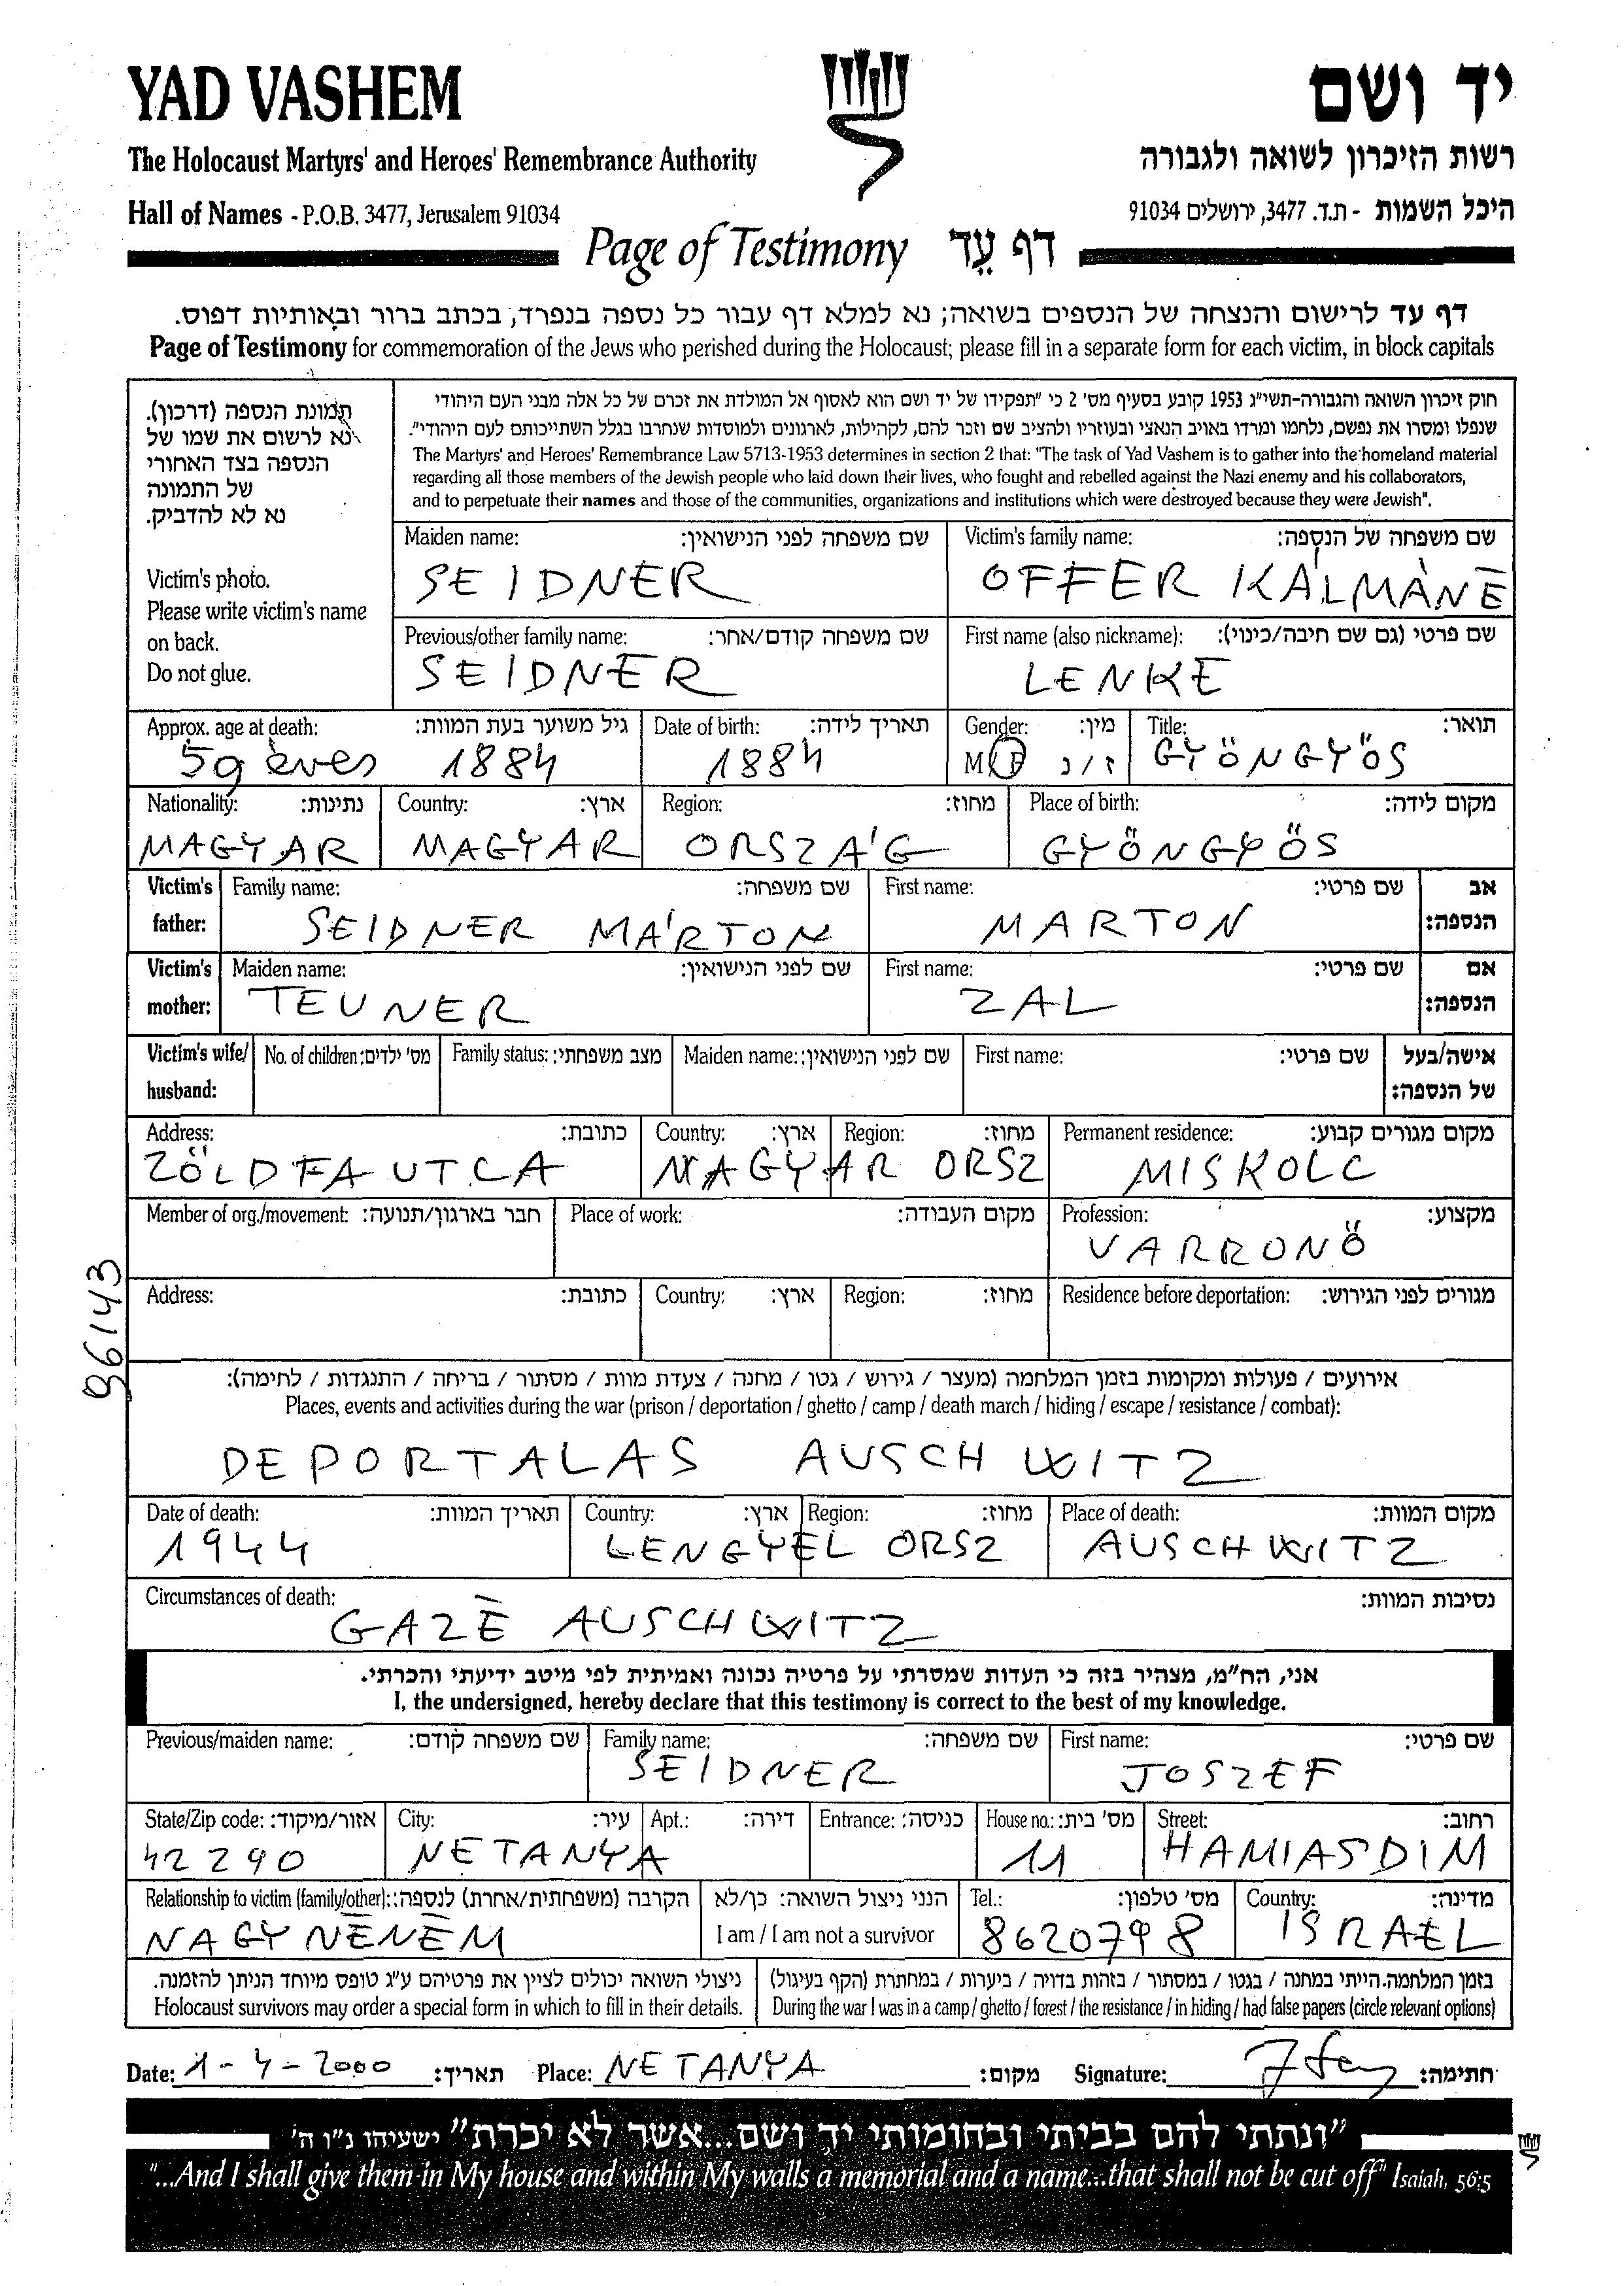 YAD VASHEM
יד ושם
The Holocaust Martyrs' and Heroes' Remembrance Authority
רשות הזיכרון לשואה ולגבורה
Hall of Names - P.O.B. 3477, Jerusalem 91034
היכל השמות - ת.ד. 3477, ירושלים 91034
Page of Testimony דף עֵד
דף עד לרישום והנצחה של הנספים בשואה; נא למלא דף עבור כל נספה בנפרד, בכתב ברור ובאותיות דפוס.
Page of Testimony for commemoration of the Jews who perished during the Holocaust; please fill in a separate form for each victim, in block capitals
תמונת הנספה (דרכון).
נא לרשום את שמו של
הנספה בצד האחורי
של התמונה
נא לא להדביק.
Victim's photo.
Please write victim's name
on back.
Do not glue.
חוק זיכרון השואה והגבורה-תשי"ג 1953 קובע בסעיף מס' 2 כי "תפקידו של יד ושם הוא לאסוף אל המולדת את זכרם של כל אלה מבני העם היהודי
שנפלו ומסרו את נפשם, נלחמו ומרדו באויב הנאצי ובעוזריו ולהציב שם וזכר להם, לקהילות, לארגונים ולמוסדות שנחרבו בגלל השתייכותם לעם היהודי".
The Martyrs' and Heroes' Remembrance Law 5713-1953 determines in section 2 that: "The task of Yad Vashem is to gather into the homeland material
regarding all those members of the Jewish people who laid down their lives, who fought and rebelled against the Nazi enemy and his collaborators,
and to perpetuate their names and those of the communities, organizations and institutions which were destroyed because they were Jewish".
Maiden name: שם משפחה לפני הנישואין:
SEIDNER
Victim's family name: שם משפחה של הנספה:
OFFER KÁLMÁNÉ
Previous/other family name: שם משפחה קודם/אחר:
SEIDNER
First name (also nickname): שם פרטי (גם שם חיבה/כינוי):
LENKE
Approx. age at death: גיל משוער בעת המוות:
59 éves 1884
Date of birth: תאריך לידה:
1884
Gender: מין:
M F ז / נ
Title: תואר:
GYÖNGYÖS
Nationality: נתינות:
MAGYAR
Country: ארץ:
MAGYAR
Region: מחוז:
ORSZÁG
Place of birth: מקום לידה:
GYÖNGYÖS
Victim's father:
Family name: שם משפחה:
SEIDNER MÁRTON
First name: שם פרטי:
MARTON
אב הנספה:
Victim's mother:
Maiden name: שם לפני הנישואין:
TEUNER
First name: שם פרטי:
ZAL
אם הנספה:
Victim's wife/ husband:
No. of children: מס' ילדים:
Family status: מצב משפחתי:
Maiden name: שם לפני הנישואין:
First name: שם פרטי:
אישה/בעל של הנספה:
Address: כתובת:
ZÖLDFA UTCA
Country: ארץ: Region: מחוז:
MAGYAR ORSZ
Permanent residence: מקום מגורים קבוע:
MISKOLC
Member of org./movement: חבר בארגון/תנועה:
Place of work: מקום העבודה:
Profession: מקצוע:
VARRONŐ
96143
Address: כתובת:
Country: ארץ:
Region: מחוז:
Residence before deportation: מגורים לפני הגירוש:
אירועים / פעולות ומקומות בזמן המלחמה (מעצר / גירוש / גטו / מחנה / צעדת מוות / מסתור / בריחה / התנגדות / לחימה):
Places, events and activities during the war (prison / deportation / ghetto / camp / death march / hiding / escape / resistance / combat):
DEPORTALAS AUSCHWITZ
Date of death: תאריך המוות:
1944
Country: ארץ: Region: מחוז:
LENGYEL ORSZ
Place of death: מקום המוות:
AUSCHWITZ
Circumstances of death: נסיבות המוות:
GAZÉ AUSCHWITZ
אני, הח"מ, מצהיר בזה כי העדות שמסרתי על פרטיה נכונה ואמיתית לפי מיטב ידיעתי והכרתי.
I, the undersigned, hereby declare that this testimony is correct to the best of my knowledge.
Previous/maiden name: שם משפחה קודם:
Family name: שם משפחה:
SEIDNER
First name: שם פרטי:
JOSZEF
State/Zip code: אזור/מיקוד:
42290
City: עיר:
NETANYA
Apt.: דירה:
Entrance: כניסה:
House no.: מס' בית:
11
Street: רחוב:
HAMIASDIM
Relationship to victim (family/other): הקרבה (משפחתית/אחרת) לנספה:
NAGYNÉNÉM
הנני ניצול השואה: כן/לא
I am / I am not a survivor
Tel.: מס' טלפון:
8620798
Country: מדינה:
ISRAEL
ניצולי השואה יכולים לציין את פרטיהם ע"ג טופס מיוחד הניתן להזמנה.
Holocaust survivors may order a special form in which to fill in their details.
בזמן המלחמה הייתי במחנה / בגטו / במסתור / בזהות בדויה / ביערות / במחתרת (הקף בעיגול)
During the war I was in a camp / ghetto / forest / the resistance / in hiding / had false papers (circle relevant options)
Date: 1-4-2000 תאריך: Place: NETANYA מקום: Signature: חתימה:
"ונתתי להם בביתי ובחומותי יד ושם...אשר לא יכרת" ישעיהו נ"ו ה'
"...And I shall give them in My house and within My walls a memorial and a name...that shall not be cut off" Isaiah, 56:5